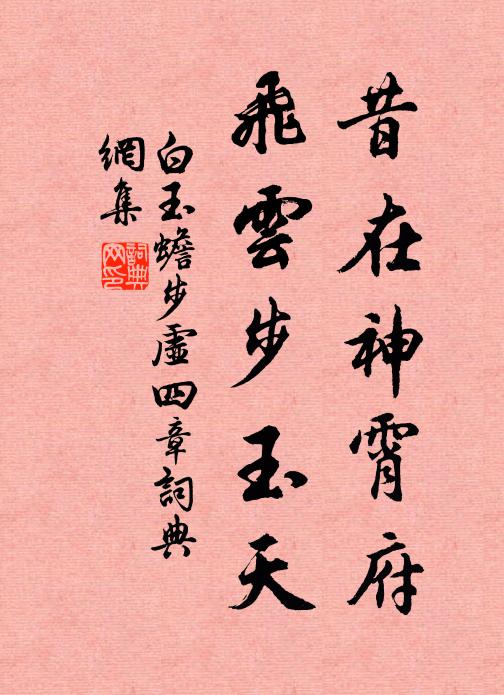 昔在神霄府
飛雲步玉天
白玉蟾步虛四章詞典
網集
詞典
网印